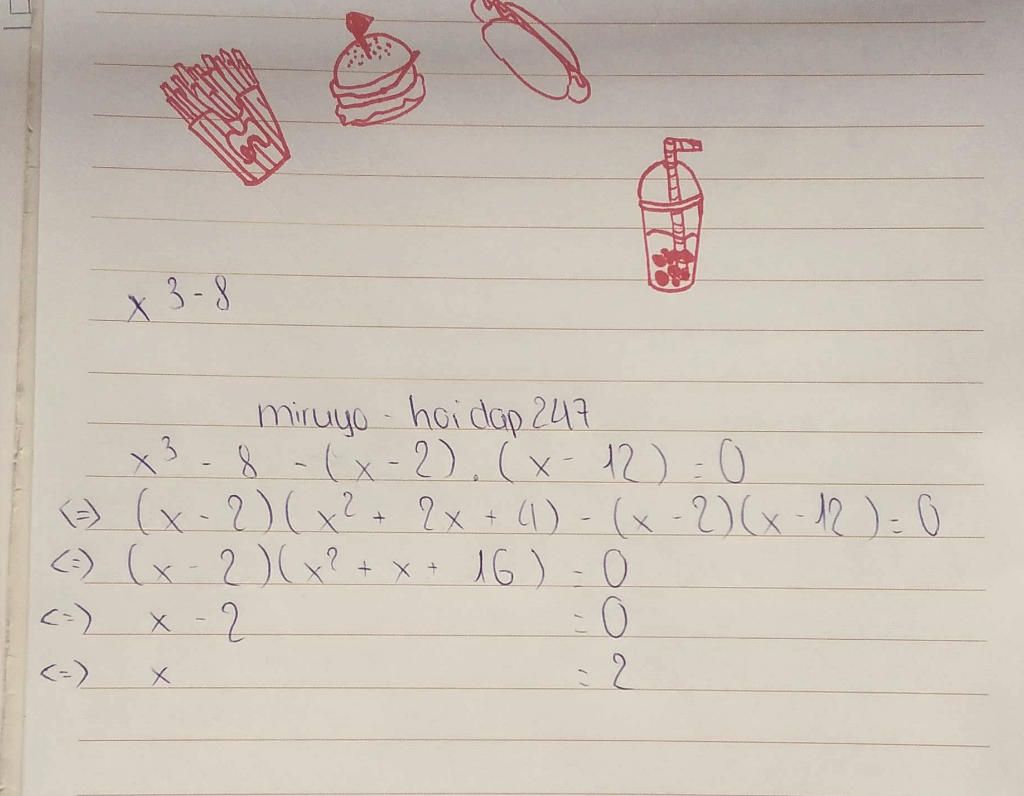 x³ - 8
miruyo - hoidap247
x³ - 8 - (x - 2) . (x - 12) = 0
<=> (x - 2)(x² + 2x + 4) - (x - 2)(x - 12) = 0
<=> (x - 2)(x² + x + 16) = 0
<=> x - 2 = 0
<=> x = 2